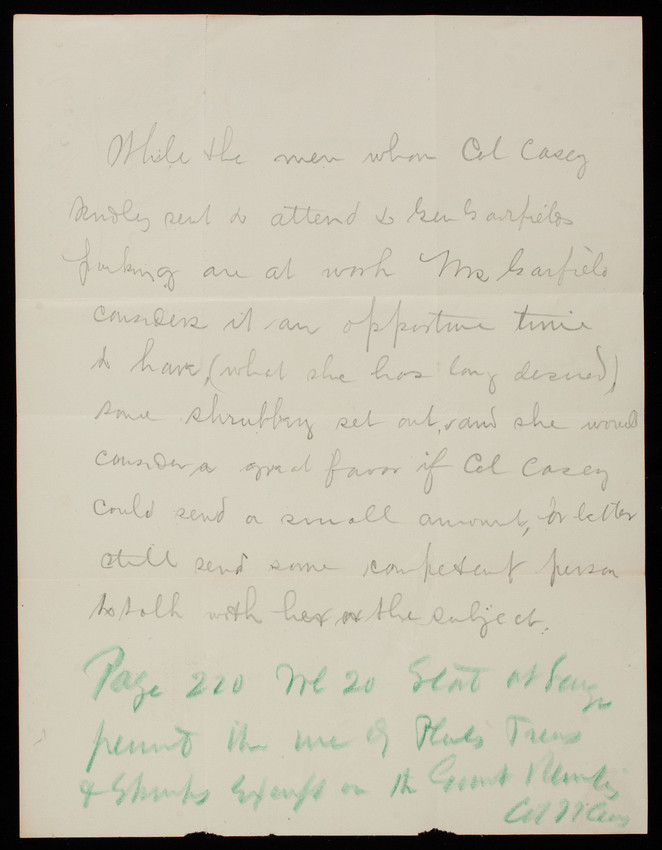 While the men whom Col Casey
kindly sent to attend to Gen Garfields
parking are at work Mrs Garfield
considers it an opportune time
to have, (what she has long desired)
some shrubbery set out, and she would
consider a great favor if Col Casey
could send a small amount, or better
still send some competent person
to talk with her on the subject.
Page 220 Vol 20 Stat at Large
permit the use of Plants Trees
& Shrubs Except on the Grounds